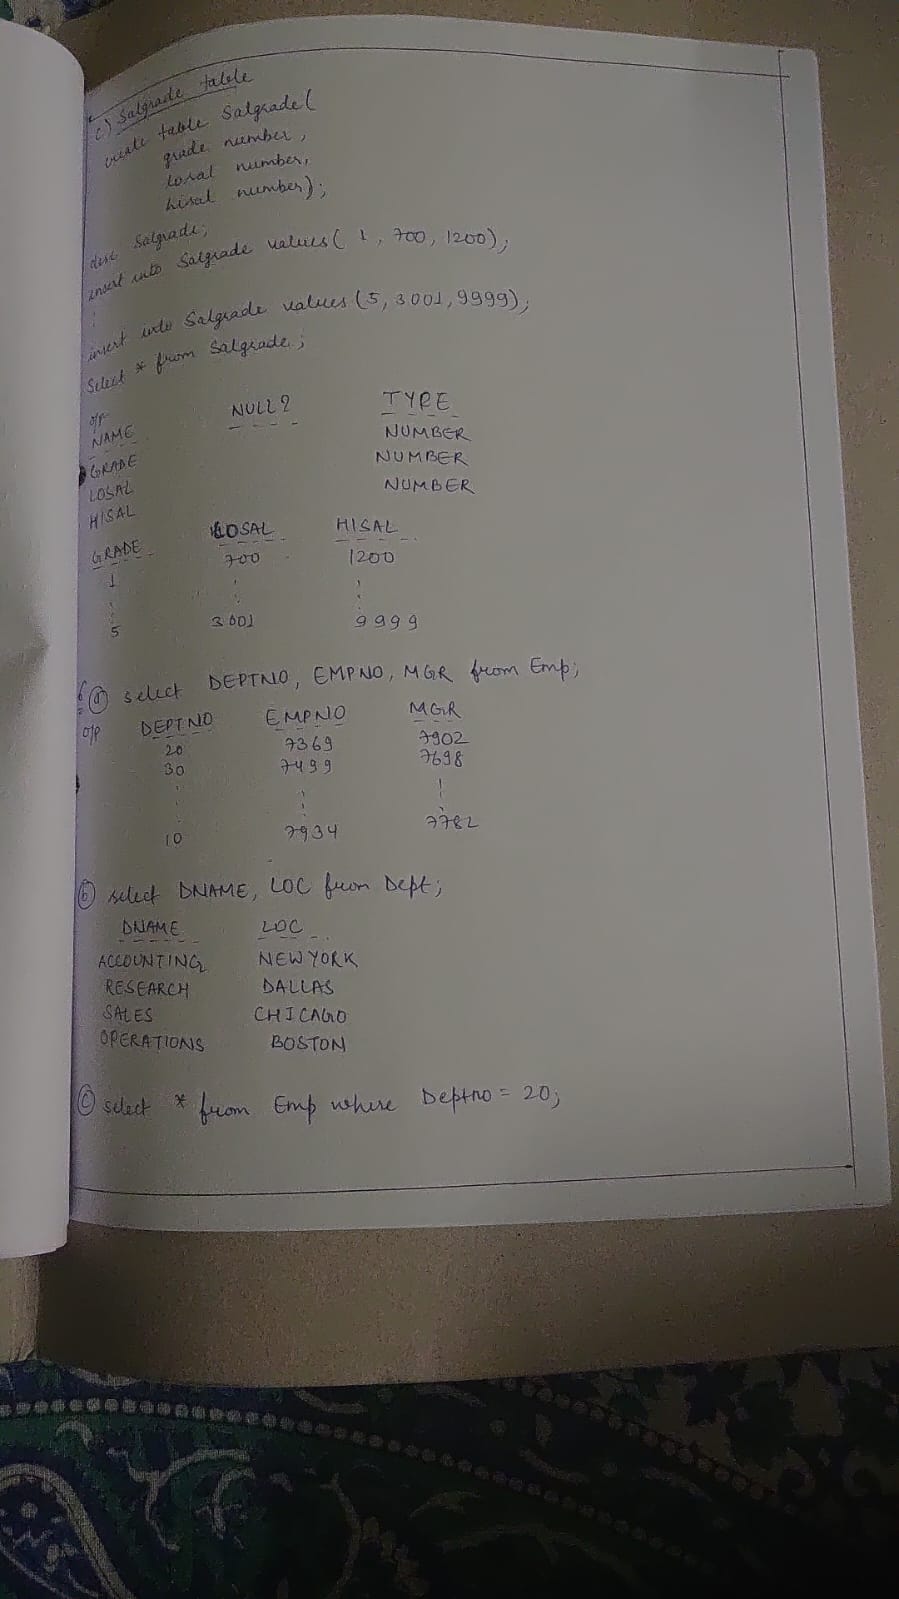 c) Salgrade table
create table Salgrade(
grade number,
losal number,
hisal number);
desc Salgrade;
insert into Salgrade values( 1, 700, 1200);
insert into Salgrade values (5, 3001, 9999);
Select * from Salgrade;
o/p
NAME NULL? TYPE
GRADE NUMBER
LOSAL NUMBER
HISAL NUMBER
GRADE LOSAL HISAL
1 700 1200
5 3001 9999
6 a select DEPTNO, EMPNO, MGR from Emp;
o/p DEPTNO EMPNO MGR
20 7369 7902
30 7499 7698
10 7934 7782
b select DNAME, LOC from Dept;
DNAME LOC
ACCOUNTING NEW YORK
RESEARCH DALLAS
SALES CHICAGO
OPERATIONS BOSTON
c select * from Emp where Deptno = 20;